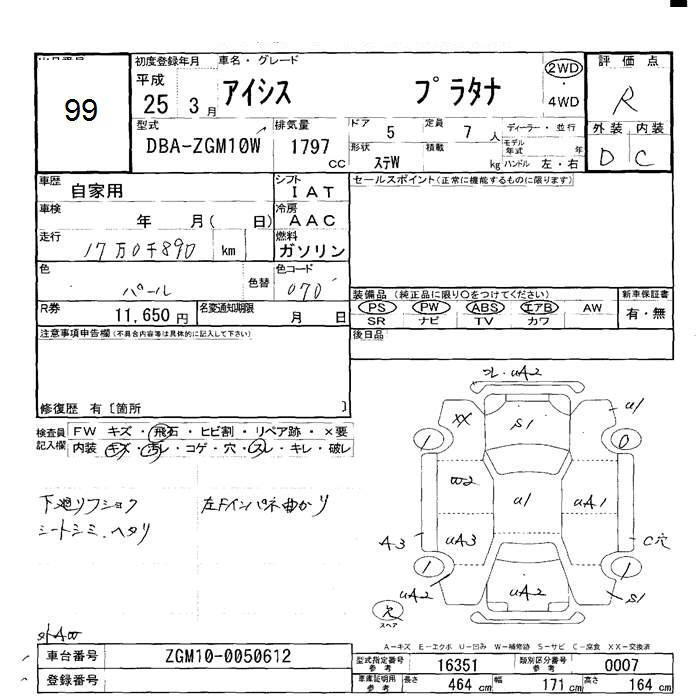 99
初度登録年月 車名・グレード
平成
25 3月 アイシス プラタナ
2WD
・
4WD
評価点
R
型式 排気量 ドア 5 定員 7人 ディーラー・並行
DBA-ZGM10W 1797 cc
形状 ステW 積載 kg モデル年式 年
ハンドル 左・右
外装 内装
D C
車歴 自家用 シフト IAT
セールスポイント(正常に機能するものに限ります)
車検 年 月( 日) 冷房 AAC
走行 17万0千890 km 燃料 ガソリン
色 パール 色替 色コード 070
装備品 (純正品に限り○をつけてください) 新車保証書
PS PW ABS エアB AW 有・無
SR ナビ TV カワ
R券 11,650円 名変通知期限 月 日
後日品
注意事項申告欄(不具合内容等は具体的に記入して下さい)
修復歴 有〔箇所 〕
検査員記入欄
FW キズ・飛石・ヒビ割・リペア跡・×要
内装 キズ・汚レ・コゲ・穴・スレ・キレ・破レ
下廻リフショク 左Fインパネ曲がり
シートシミ、ヘタリ
uA2
XX S1 u1
1 0
W2 u1 uA1
A3 uA3 C穴
1 1
uA2 uA2 S1
欠
スペア
A-キズ E-エクボ U-凹み W-補修跡 S-サビ C-腐食 XX-交換済
車台番号 ZGM10-0050612
登録番号
型式指定番号 参考 16351 類別区分番号 参考 0007
車庫証明用 参考 長さ 464 cm 幅 171 cm 高さ 164 cm